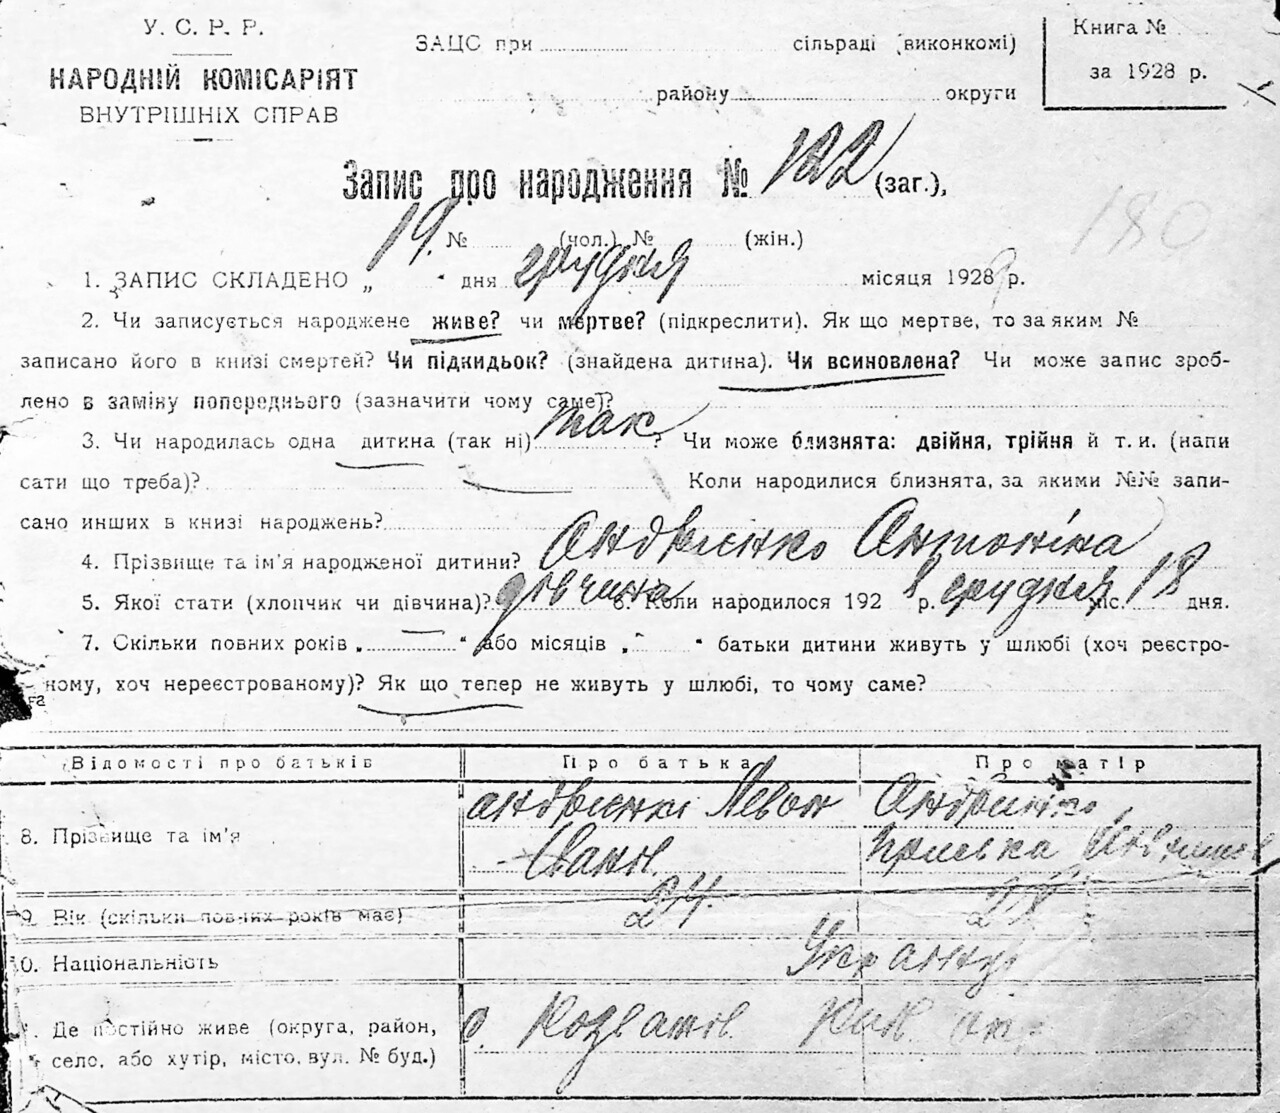 У. С. Р. Р.
НАРОДНІЙ КОМІСАРІЯТ
ВНУТРІШНІХ СПРАВ
ЗАЦС при сільраді (виконкомі)
району округи
Книга №
за 1928 р.
Запис про народження № 122 (заг.),
180
19. № (чол.) № (жін.)
1. ЗАПИС СКЛАДЕНО „ “ дня грудня місяця 1928 р.
2. Чи записується народжене живе? чи мертве? (підкреслити). Як що мертве, то за яким №
записано його в книзі смертей? Чи підкидьок? (знайдена дитина). Чи всиновлена? Чи може запис зроб-
лено в заміну попереднього (зазначити чому саме)?
3. Чи народилась одна дитина (так ні) так ? Чи може близнята: двійня, трійня й т. и. (напи
сати що треба)? Коли народилися близнята, за якими №№ запи-
сано инших в книзі народжень?
4. Прізвище та ім'я народженої дитини? Андрієнко Антоніна
5. Якої статі (хлопчик чи дівчина)? дівчина 6. Коли народилося 192 8 р. грудня міс. 18 дня.
7. Скільки повних років „ “ або місяців „ “ батьки дитини живуть у шлюбі (хоч реєстро-
ному, хоч нереєстрованому)? Як що тепер не живуть у шлюбі, то чому саме?
Відомості про батьків Про батька Про матір
8. Прізвище та ім'я
Левон
Іван.
9. Вік (скільки повних років має) 24.
0. Національність Українці
Де постійно живе (округа, район,
село, або хутір, місто, вул. № буд.)